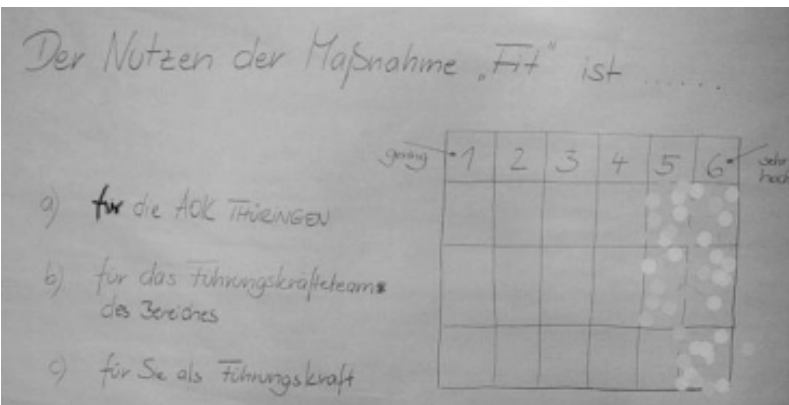 Der Nutzen der Maßnahme „Fit" ist ......
gering 1 2 3 4 5 6 sehr hoch
a) für die AOK THÜRINGEN
b) für das Führungskräfteteam
des Bereiches
c) für Sie als Führungskraft